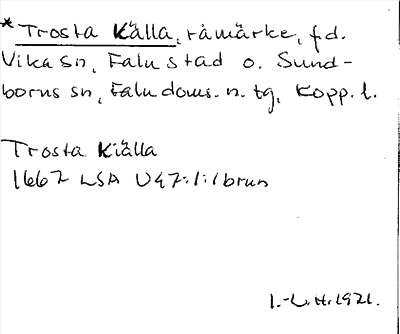 *Trosta Källa, råmärke, fd.
Vika sn, Falu stad o. Sund-
borns sn, Falu doms. n. tg, Kopp. l.
Trosta Kiälla
1667 LSA U47:1:1brun
I.-L. H. 1921.